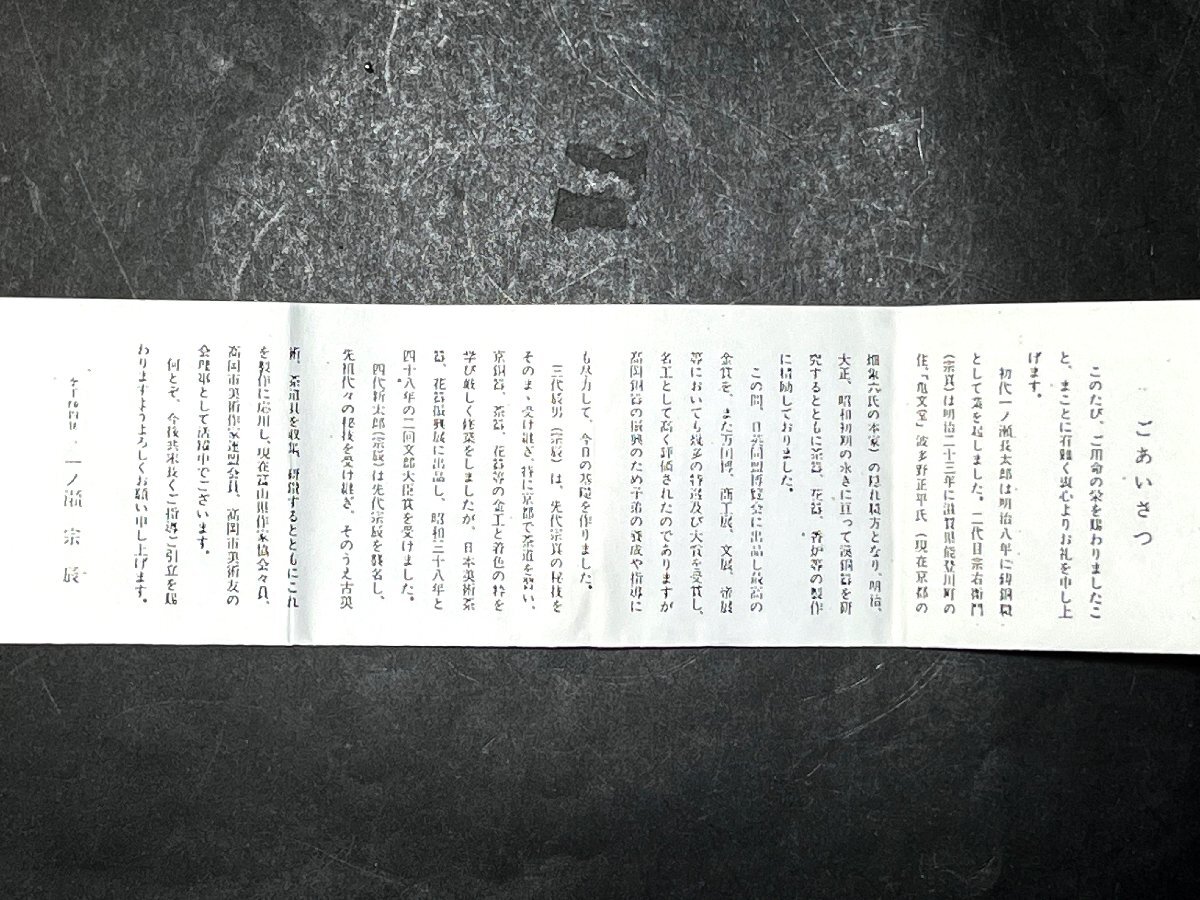 ごあいさつ
このたび、ご用命の栄を賜わりましたこ
と、まことに有難く衷心よりお礼を申し上
げます。
初代一ノ瀬長太郎は明治八年に鋳銅職
として業を起しました。二代目宗右衛門
(宗真)は明治二十三年に滋賀県能登川町の
住、「亀文堂」波多野正平氏(現在京都の
畑象六氏の本家)の隠れ職方となり、明治、
大正、昭和初期の永きに亘って鋳銅器を研
究するとともに茶器、花器、香炉等の製作
に精励しておりました。
この間、日英同盟博覧会に出品し最高の
金賞を、また万国博、商工展、文展、帝展
等においても数多の特選及び大賞を受賞し、
名工として高く評価されたのでありますが
高岡銅器の振興のため子弟の養成や指導に
も尽力して、今日の基礎を作りました。
三代辰男(宗辰)は、先代宗真の秘技を
そのまゝ受け継ぎ、特に京都で茶道を習い、
京銅器、茶器、花器等の金工と着色の粋を
学び厳しく修業をしましたが、日本美術茶
器、花器振興展に出品し、昭和三十八年と
四十八年の二回文部大臣賞を受けました。
四代新太郎(宗辰)は先代宗辰を襲名し、
先祖代々の秘技を受け継ぎ、そのうえ古美
術、茶道具を収集、研鑽するとともにこれ
を製作に応用し、現在富山県作家協会々員、
高岡市美術作家連盟会員、高岡市美術友の
会理事として活躍中でございます。
何とぞ、今後共末長くご指導ご引立を賜
わりますようよろしくお願い申し上げます。
一ノ瀬宗辰